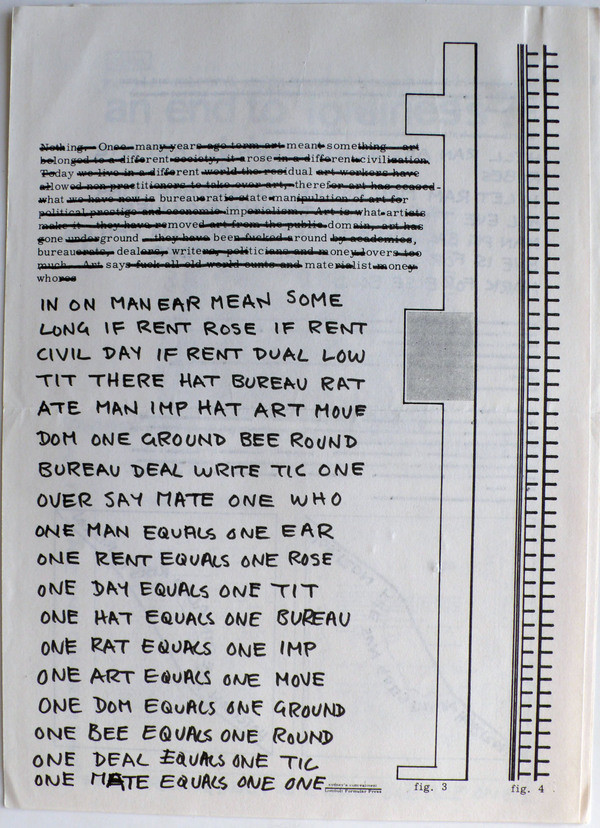 Nothing. Once many years ago term art meant something art
belonged to a different society, it arose in a different civilisation.
Today we live in a different world the residual art workers have
allowed non practitioners to take over art, therefor art has ceased-
what we have now is bureauratic state manipulation of art for
political prestige and economic imperialism.. Art is what artists
make it they have removed art from the public domain, art has
gone underground they have been fucked around by academics,
bureaurats, dealers, writers, politicians and money lovers too
much. Art says fuck all old world cunts and materialist money
whores
IN ON MAN EAR MEAN SOME
LONG IF RENT ROSE IF RENT
CIVIL DAY IF RENT DUAL LOW
TIT THERE HAT BUREAU RAT
ATE MAN IMP HAT ART MOVE
DOM ONE GROUND BEE ROUND
BUREAU DEAL WRITE TIC ONE
OVER SAY MATE ONE WHO
ONE MAN EQUALS ONE EAR
ONE RENT EQUALS ONE ROSE
ONE DAY EQUALS ONE TIT
ONE HAT EQUALS ONE BUREAU
ONE RAT EQUALS ONE IMP
ONE ART EQUALS ONE MOVE
ONE DOM EQUALS ONE GROUND
ONE BEE EQUALS ONE ROUND
ONE DEAL EQUALS ONE TIC
ONE MATE EQUALS ONE ONE
fig. 3
fig. 4